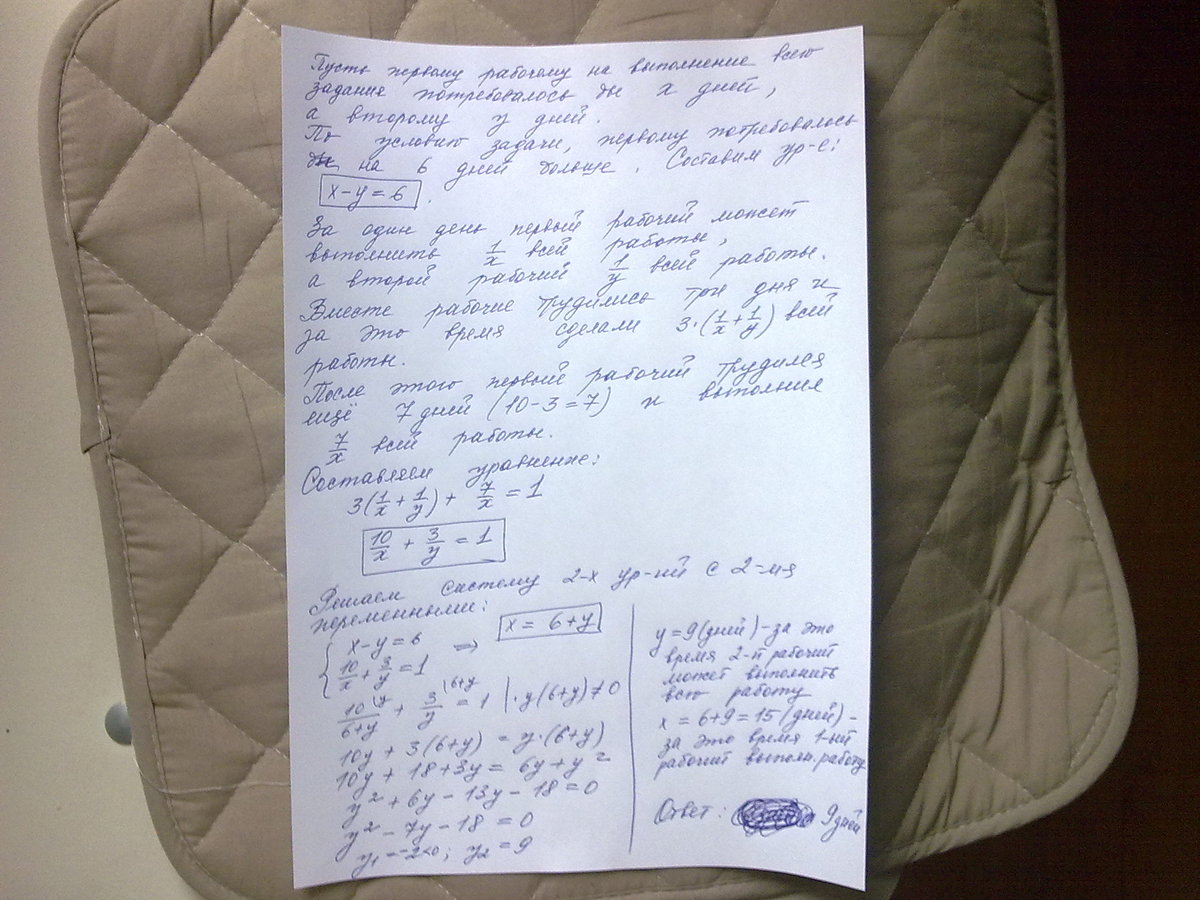 Пусть первому рабочему на выполнение всего
задания потребовалось бы x дней,
а второму y дней.
По условию задачи, первому потребовалось
бы на 6 дней больше. Составим ур-е:
x-y=6.
За один день первый рабочий может
выполнить 1/x всей работы,
а второй рабочий 1/y всей работы.
Вместе рабочие трудились три дня и
за это время сделали 3·(1/x+1/y) всей
работы.
После этого первый рабочий трудился
ещё 7 дней (10-3=7) и выполнил
7/x всей работы.
Составляем уравнение:
3(1/x + 1/y) + 7/x = 1
10/x + 3/y = 1
Решаем систему 2-х ур-ний с 2-мя
переменными:
{ x-y=6 ⇒ x = 6+y
10/x + 3/y = 1
10/(6+y) \y + 3/y \6+y = 1 | ·y(6+y)≠0
10y + 3(6+y) = y·(6+y)
10y + 18+3y = 6y+y²
y² + 6y - 13y - 18 = 0
y² - 7y - 18 = 0
y₁ = -2<0; y₂ = 9
y=9(дней) - за это
время 2-й рабочий
может выполнить
всю работу
x = 6+9=15 (дней) -
за это время 1-ый
рабочий выполн. работу
Ответ: 9 дней